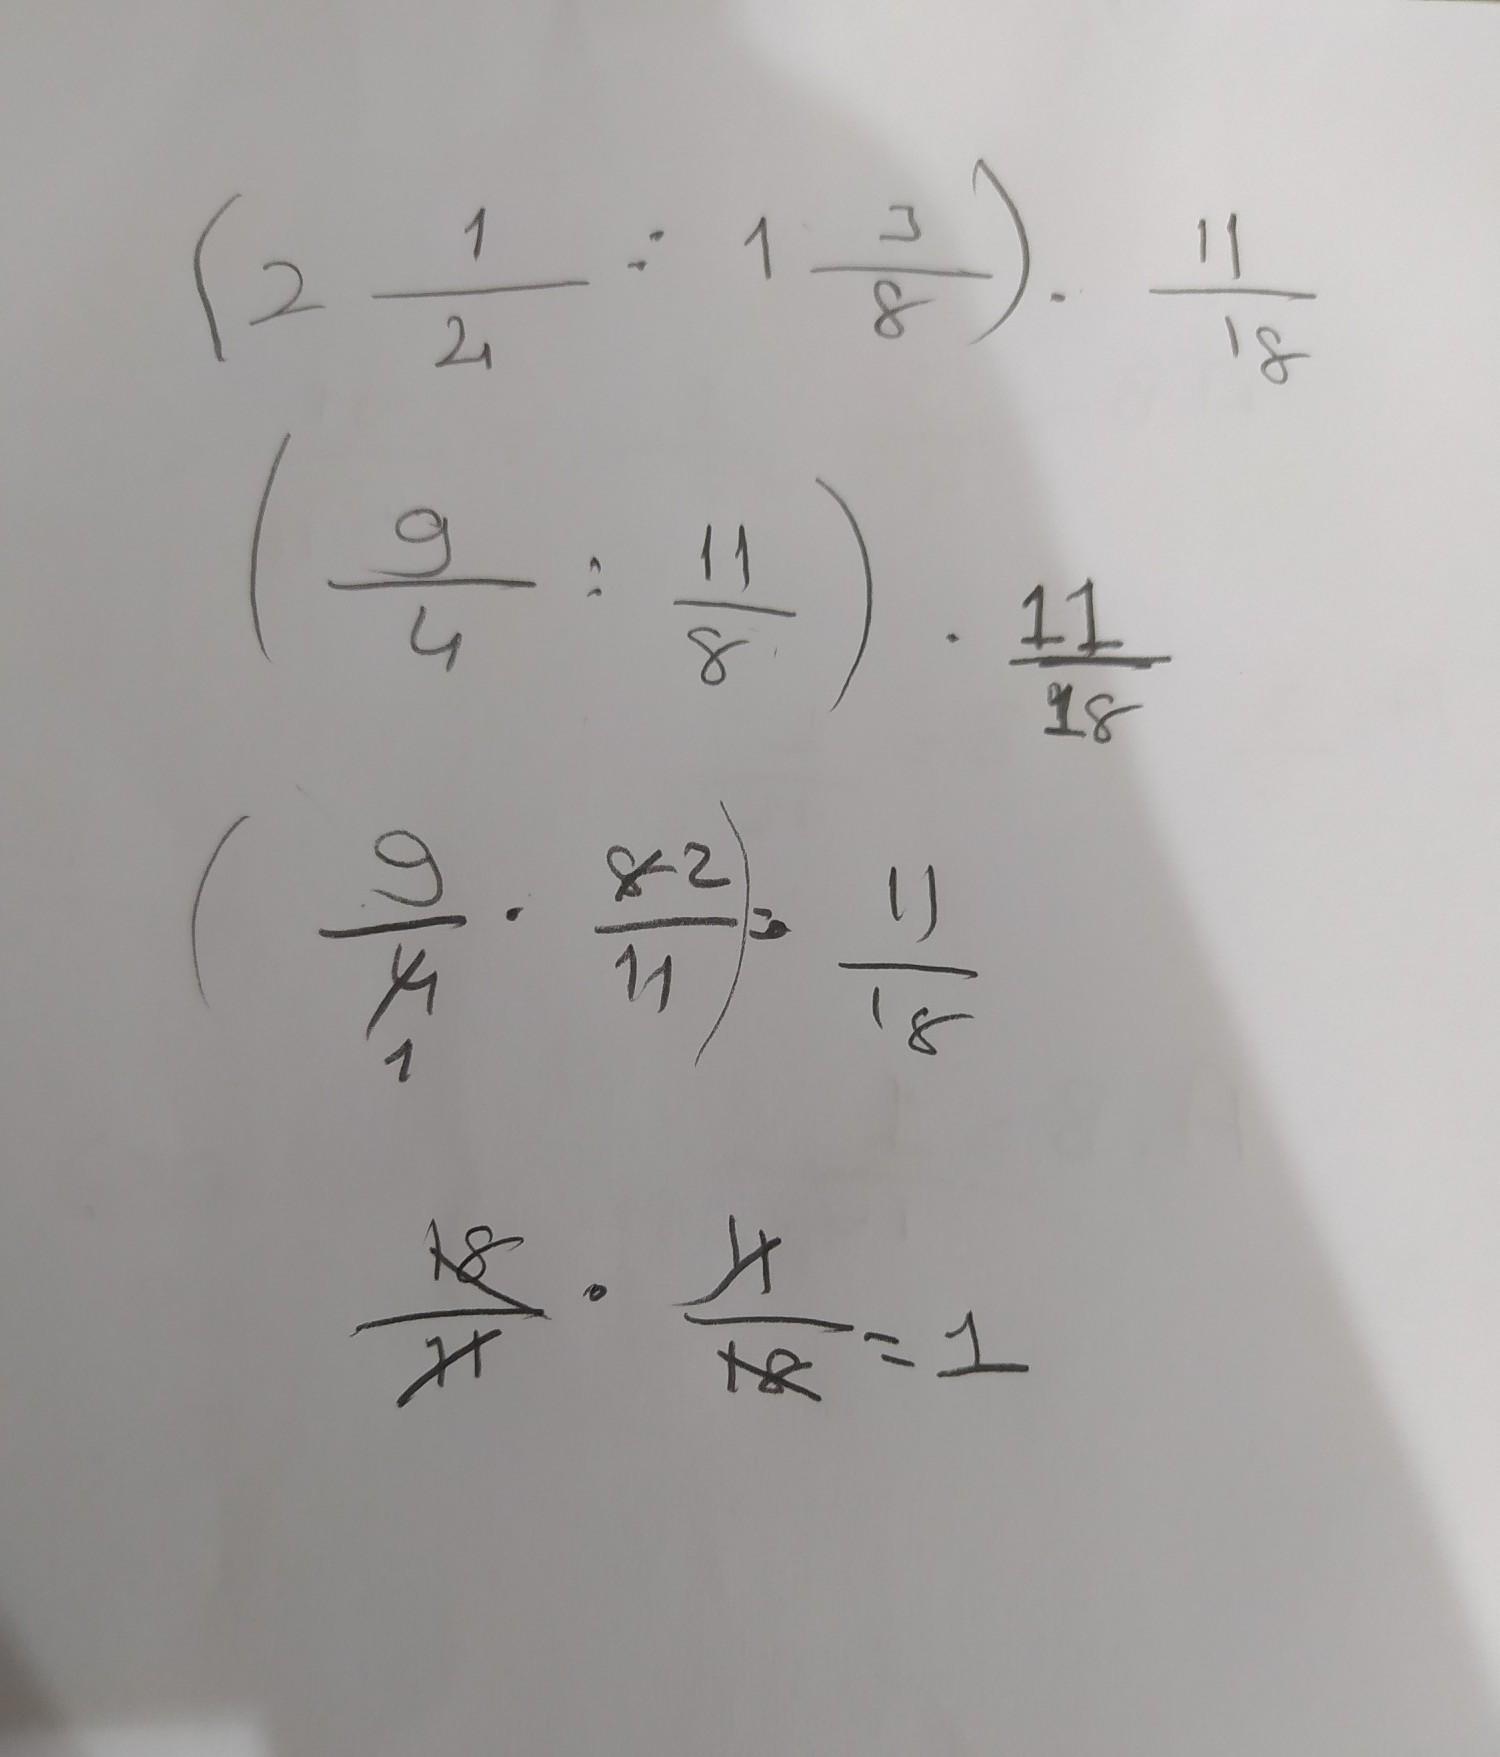 (2 1/4 : 1 3/8) . 11/18
(9/4 : 11/8) . 11/18
(9/4 1 . 8 2/11) = 11/18
18/11 . 11/18 = 1